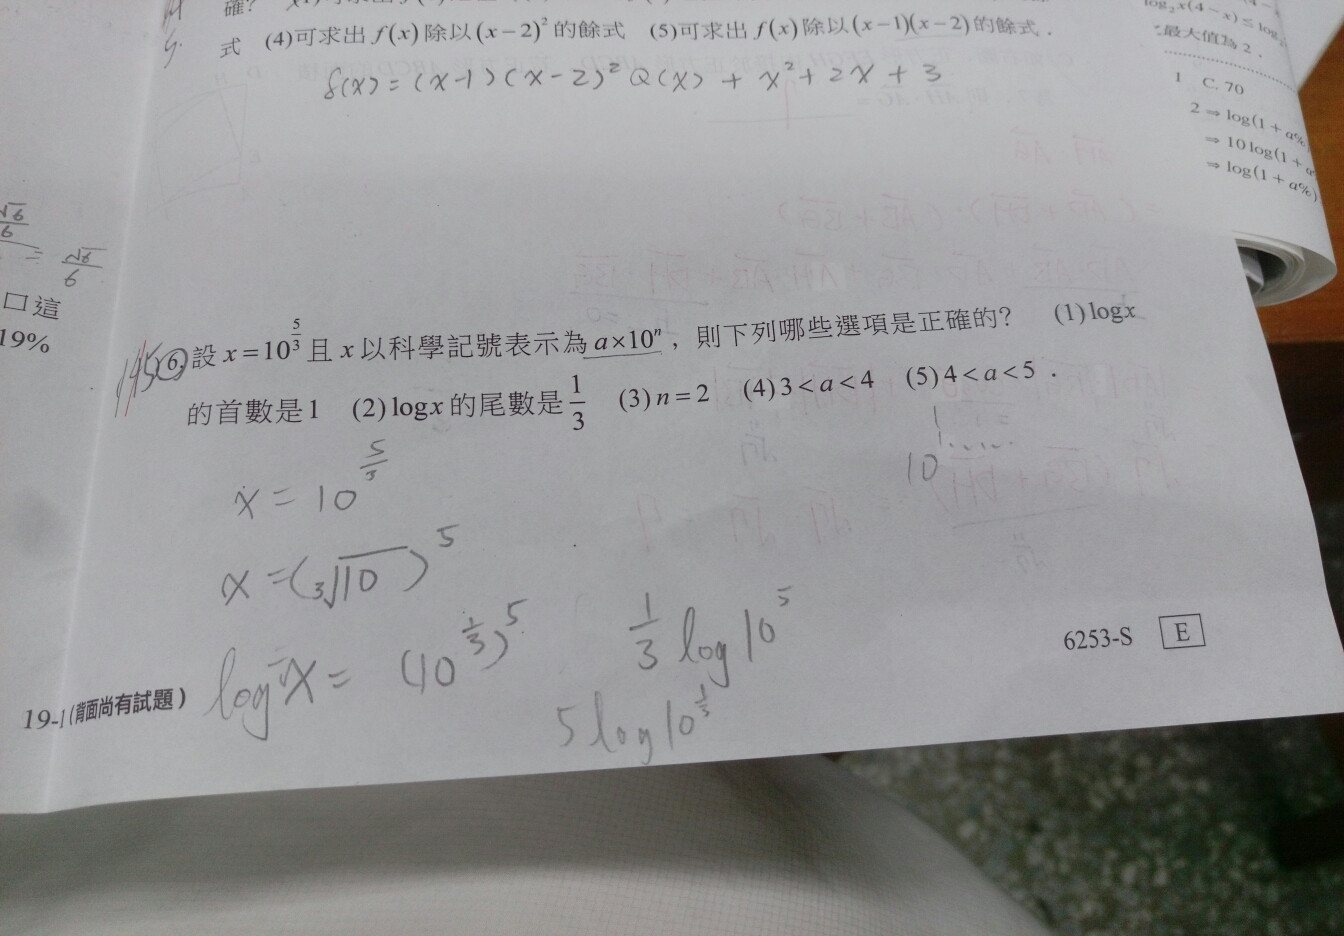 式 (4)可求出 f(x) 除以 (x−2)² 的餘式 (5)可求出 f(x) 除以 (x−1)(x−2) 的餘式．
f(x) = (x-1)(x-2)² Q(x) + x² + 2x + 3
最大值為 2．
1 C. 70
2 ⇒ log(1 + a%
⇒ 10 log(1 + a
⇒ log(1 + a%)
√6/6 = √6/6
口這
19%
145 6. 設 x=10^(5/3) 且 x 以科學記號表示為 a×10ⁿ，則下列哪些選項是正確的？ (1) logx
的首數是1 (2) logx 的尾數是 1/3 (3) n=2 (4) 3<a<4 (5) 4<a<5．
x = 10^(5/3)
10^1.....
x = (³√10)^5
log x = (10^(1/3))^5
1/3 log 10^5
5 log 10^(1/3)
6253-S E
19-1(背面尚有試題)